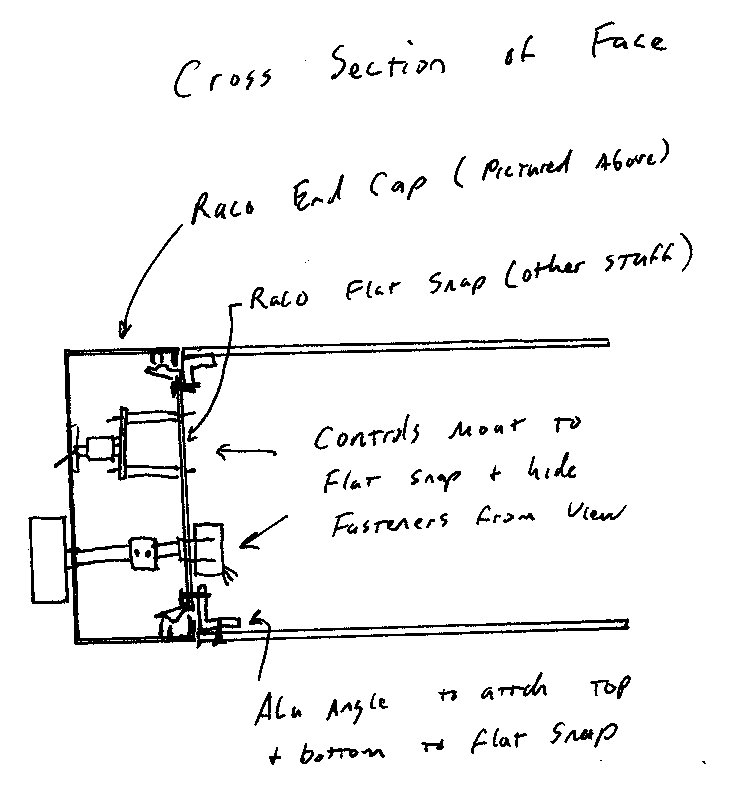 Cross Section of Face
Raco End Cap (Pictured Above)
Raco Flat Snap (other stuff)
Controls mount to
Flat Snap + hide
Fasteners from view
Alu Angle to attch Top
+ bottom to flat snap